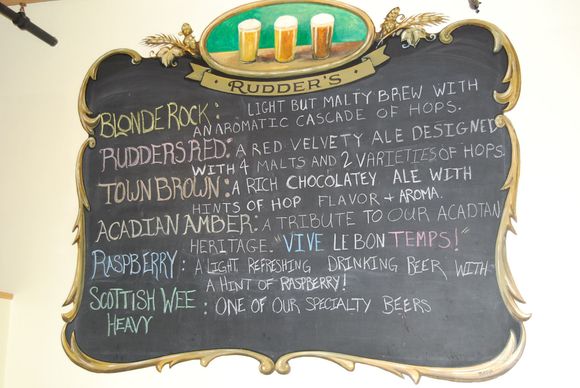 RUDDER'S
BLONDE ROCK: LIGHT BUT MALTY BREW WITH
AN AROMATIC CASCADE OF HOPS.
RUDDERS RED: A RED VELVETY ALE DESIGNED
WITH 4 MALTS AND 2 VARIETIES OF HOPS.
TOWN BROWN: A RICH CHOCOLATEY ALE WITH
HINTS OF HOP FLAVOR + AROMA.
ACADIAN AMBER: A TRIBUTE TO OUR ACADIAN
HERITAGE. "VIVE LE BON TEMPS!"
RASPBERRY: A LIGHT REFRESHING DRINKING BEER, WITH
A HINT OF RASPBERRY!
SCOTTISH WEE : ONE OF OUR SPECIALTY BEERS
HEAVY